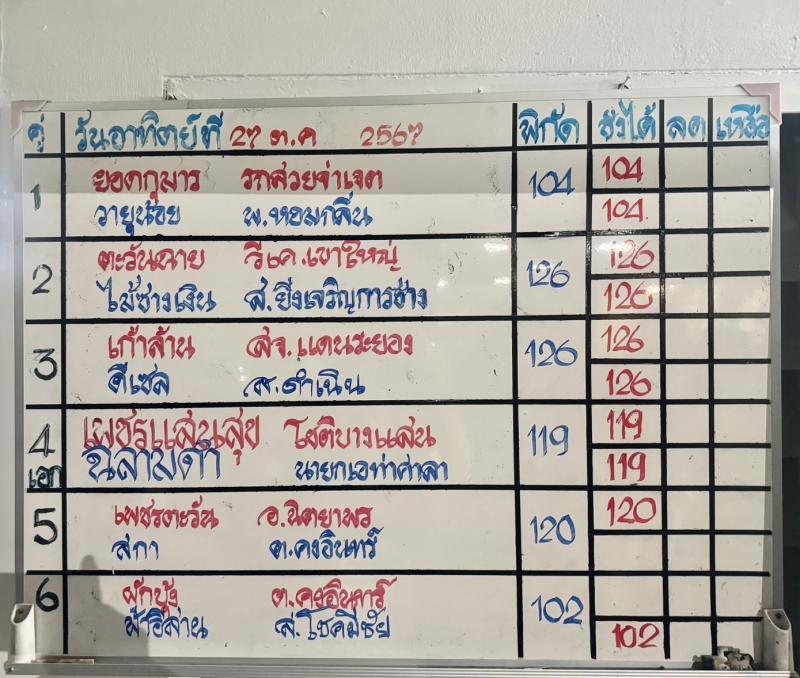 คู่ วันอาทิตย์ที่ 27 ต.ค 2567 พิกัด ชั่งได้ ลด เหลือ
1 ยอดกุมาร รถสวยจ่าเจต 104 104
วายุน้อย พ.หอมกลิ่น 104
2 ตะวันฉาย วีเค.เขาใหญ่ 126 126
ไม้ซางเงิน ส.ยิ่งเจริญการช่าง 126
3 เก้าล้าน สจ.แดนระยอง 126 126
ดีเซล ส.ดำเนิน 126
4 เพชรแสนสุข โชติบางแสน 119 119
เอก นิลามดำ นายกเอท่าศาลา 119
5 เพชรตะวัน อ.นิตยาพร 120 120
สกา ต.คงอินทร์
6 ผักบุ้ง ต.คงอินทร์ 102
ฟ้าอีสาน ส.โชคมีชัย 102